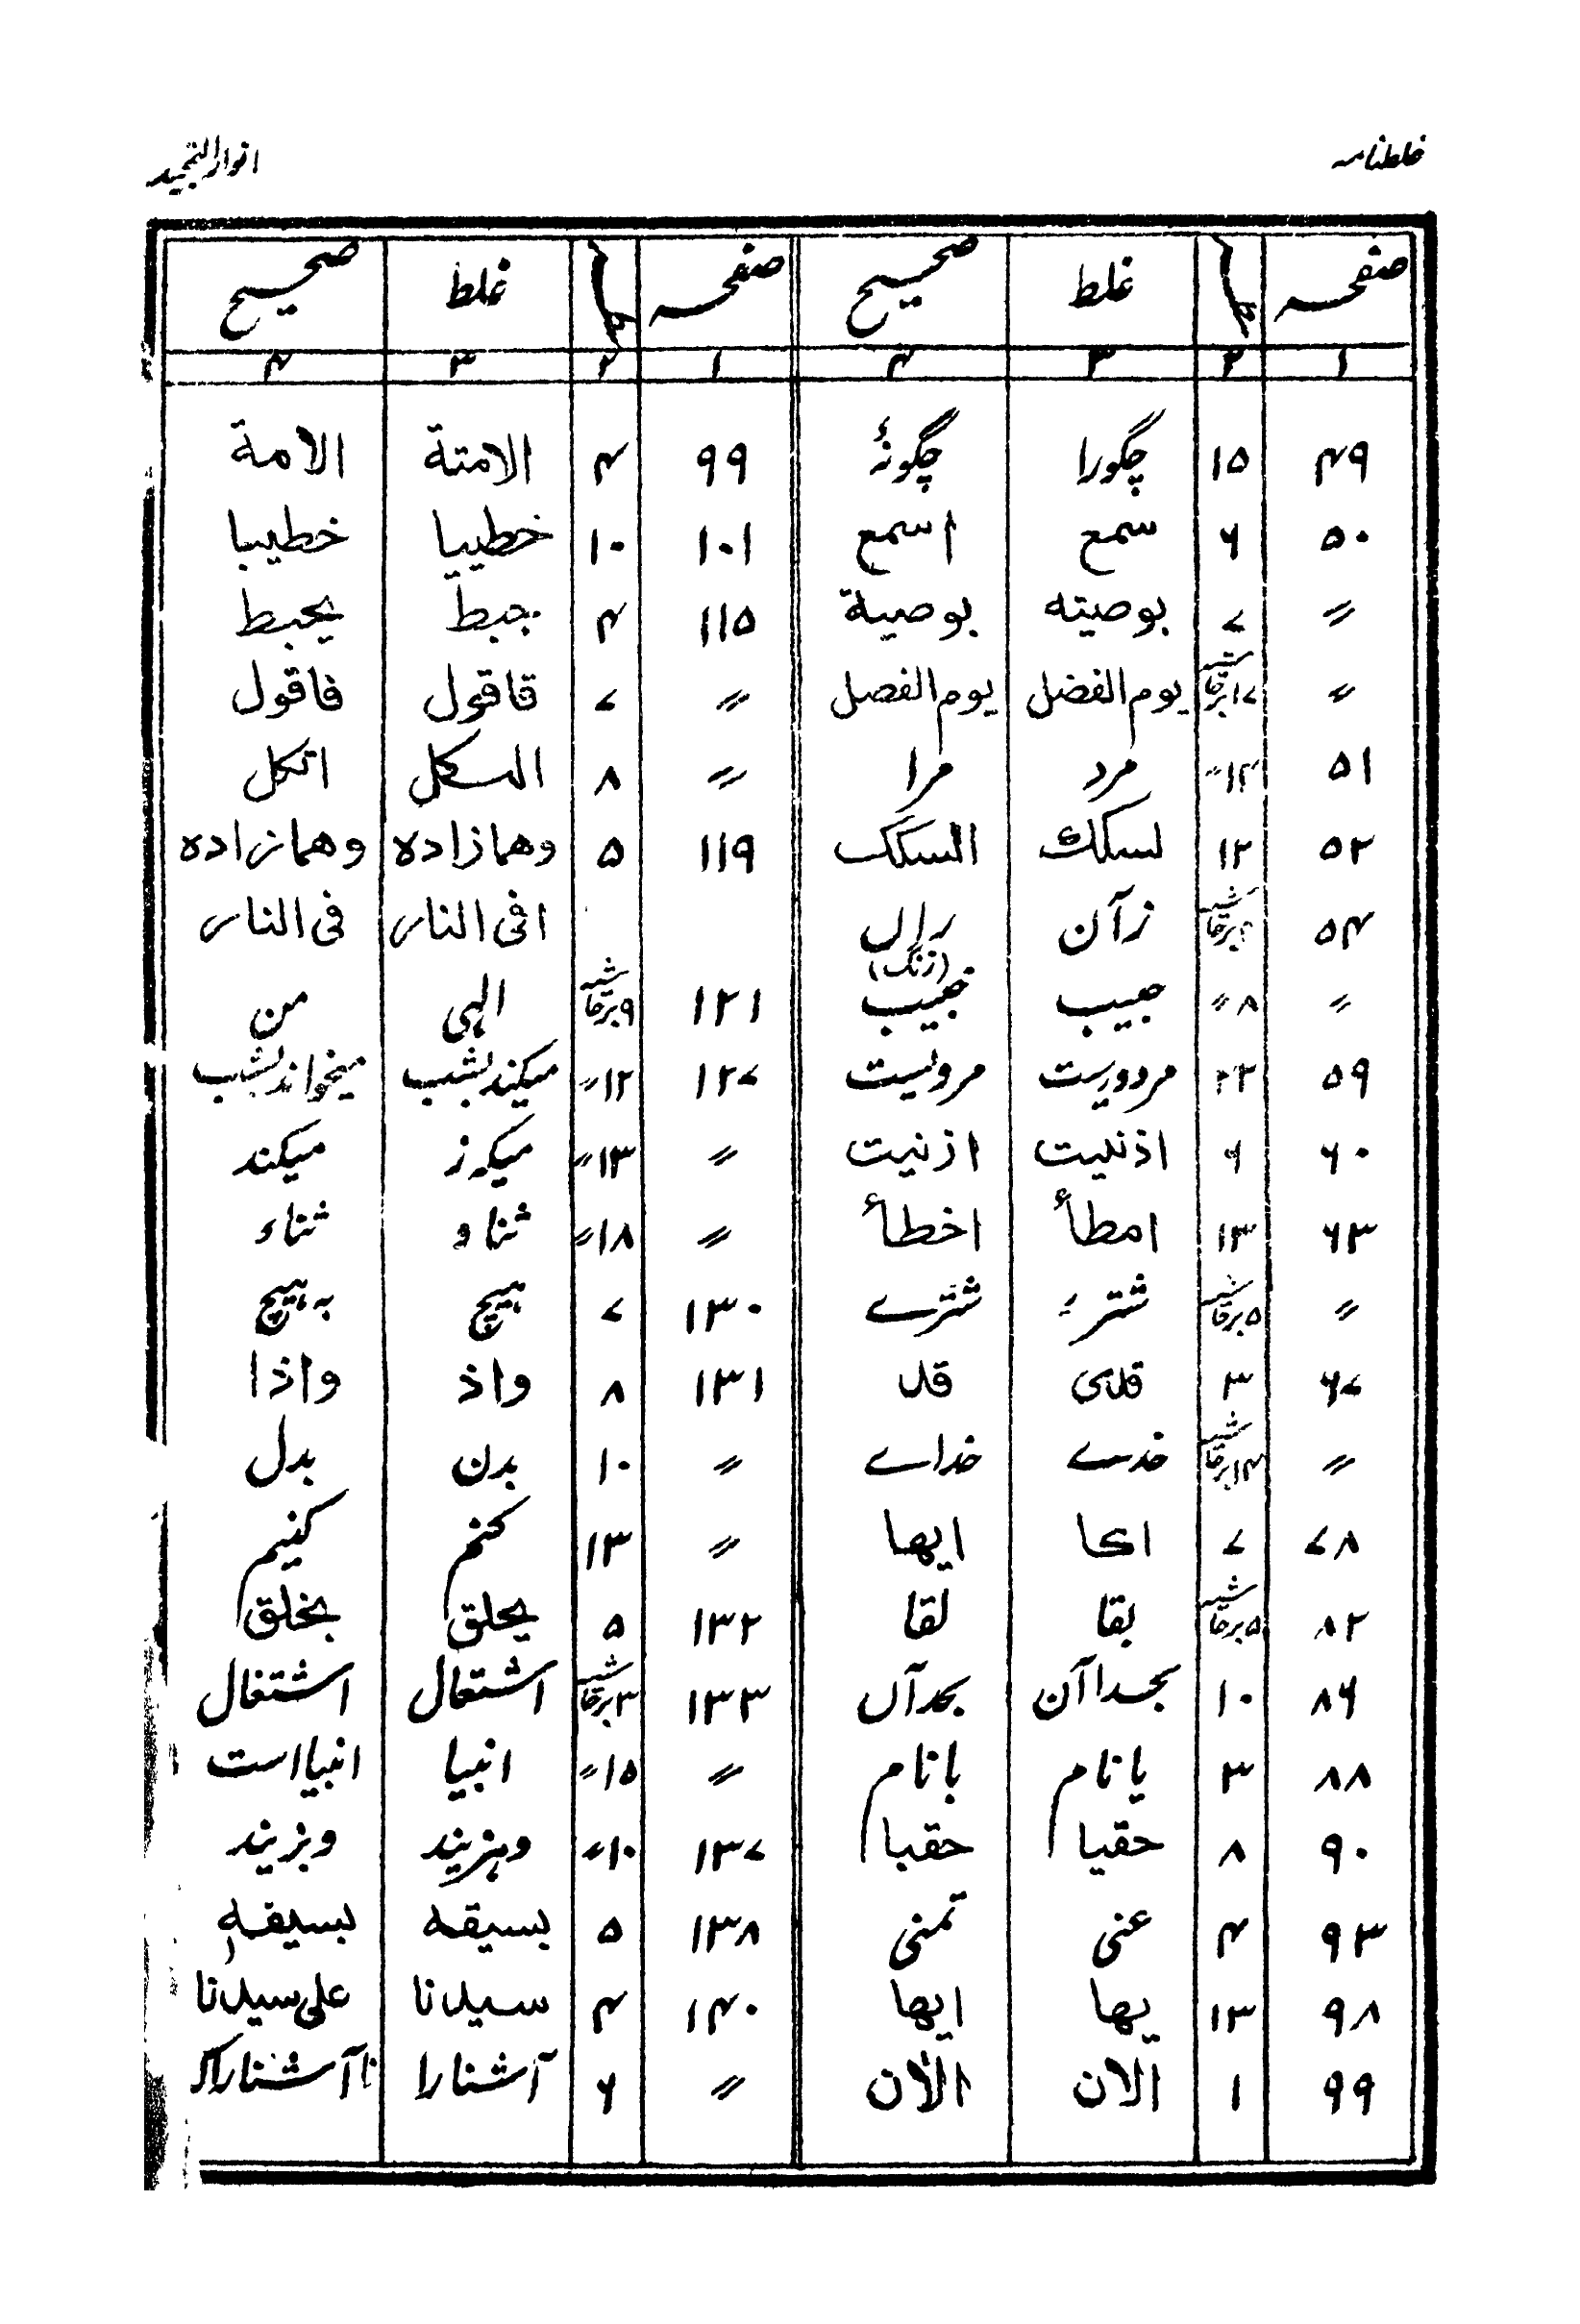 غلطنامہ انوار التمجید
صفحہ سطر غلط صحیح صفحہ سطر غلط صحیح
۱ ۲ ۳ ۴ ۱ ۲ ۳ ۴
۴۹ ۱۵ چگورا چگونۂ ۹۹ ۴ الامتة الامة
۵۰ ۶ سمع اسمع ۱۰۱ ۱۰ خطییا خطیبا
〃 ۷ بوصیته بوصیة ۱۱۵ ۴ جبط یحبط
〃 ۱۷ برحاشیہ یوم الفضل یوم الفصل 〃 ۷ قاقول فاقول
۵۱ ۱۴〃 مرد مرا 〃 ۸ اتکل
۵۲ ۱۲ السکک ۱۱۹ ۵ وهمازاده وهمانزاده
۵۴ برحاشیہ زآن افی النار فی النار
〃 ۸〃 حبیب (زنگ) ۱۲۱ ۹ برحاشیہ الہی من
۵۹ ۲۲ مردوریت مرویست ۱۲۷ ۱۲〃 میکند بشب میخواند بشب
۶۰ ۶ اذنلیت ازنیت 〃 ۱۳〃 میکند
۶۳ ۱۳ امطأ اخطأ 〃 ۱۸〃 ثناو ثناء
〃 ۵ برحاشیہ شتر شترے ۱۳۰ ۷ ہیچ بہ ہیچ
۶۷ ۳ قلی قل ۱۳۱ ۸ واذ واذا
〃 ۱۴ برحاشیہ خدسے خداے 〃 ۱۰ بدن بدل
۷۸ ۷ اکا ایھا 〃 ۱۳ کنم کنیم
۸۲ ۵ برحاشیہ بقا لقا ۱۳۲ ۵ یحلق بخلق
۸۶ ۱۰ بحمدا آن بحمد آں ۱۳۳ ۳ برحاشیہ اشتعال اشتغال
۸۸ ۳ یا نام با نام 〃 ۱۵〃 انبیا انبیا است
۹۰ ۸ حقیا حقبا ۱۳۷ ۱۰〃 وہزیند وبزیند
۹۳ ۴ عنی تمنی ۱۳۸ ۵ بسیقه بسیفه
۹۸ ۱۳ یھا ایھا ۱۴۰ ۴ سیدنا علی سیدنا
۹۹ ۱ الان الآن 〃 ۶ آشنارا نا آشناراکہ